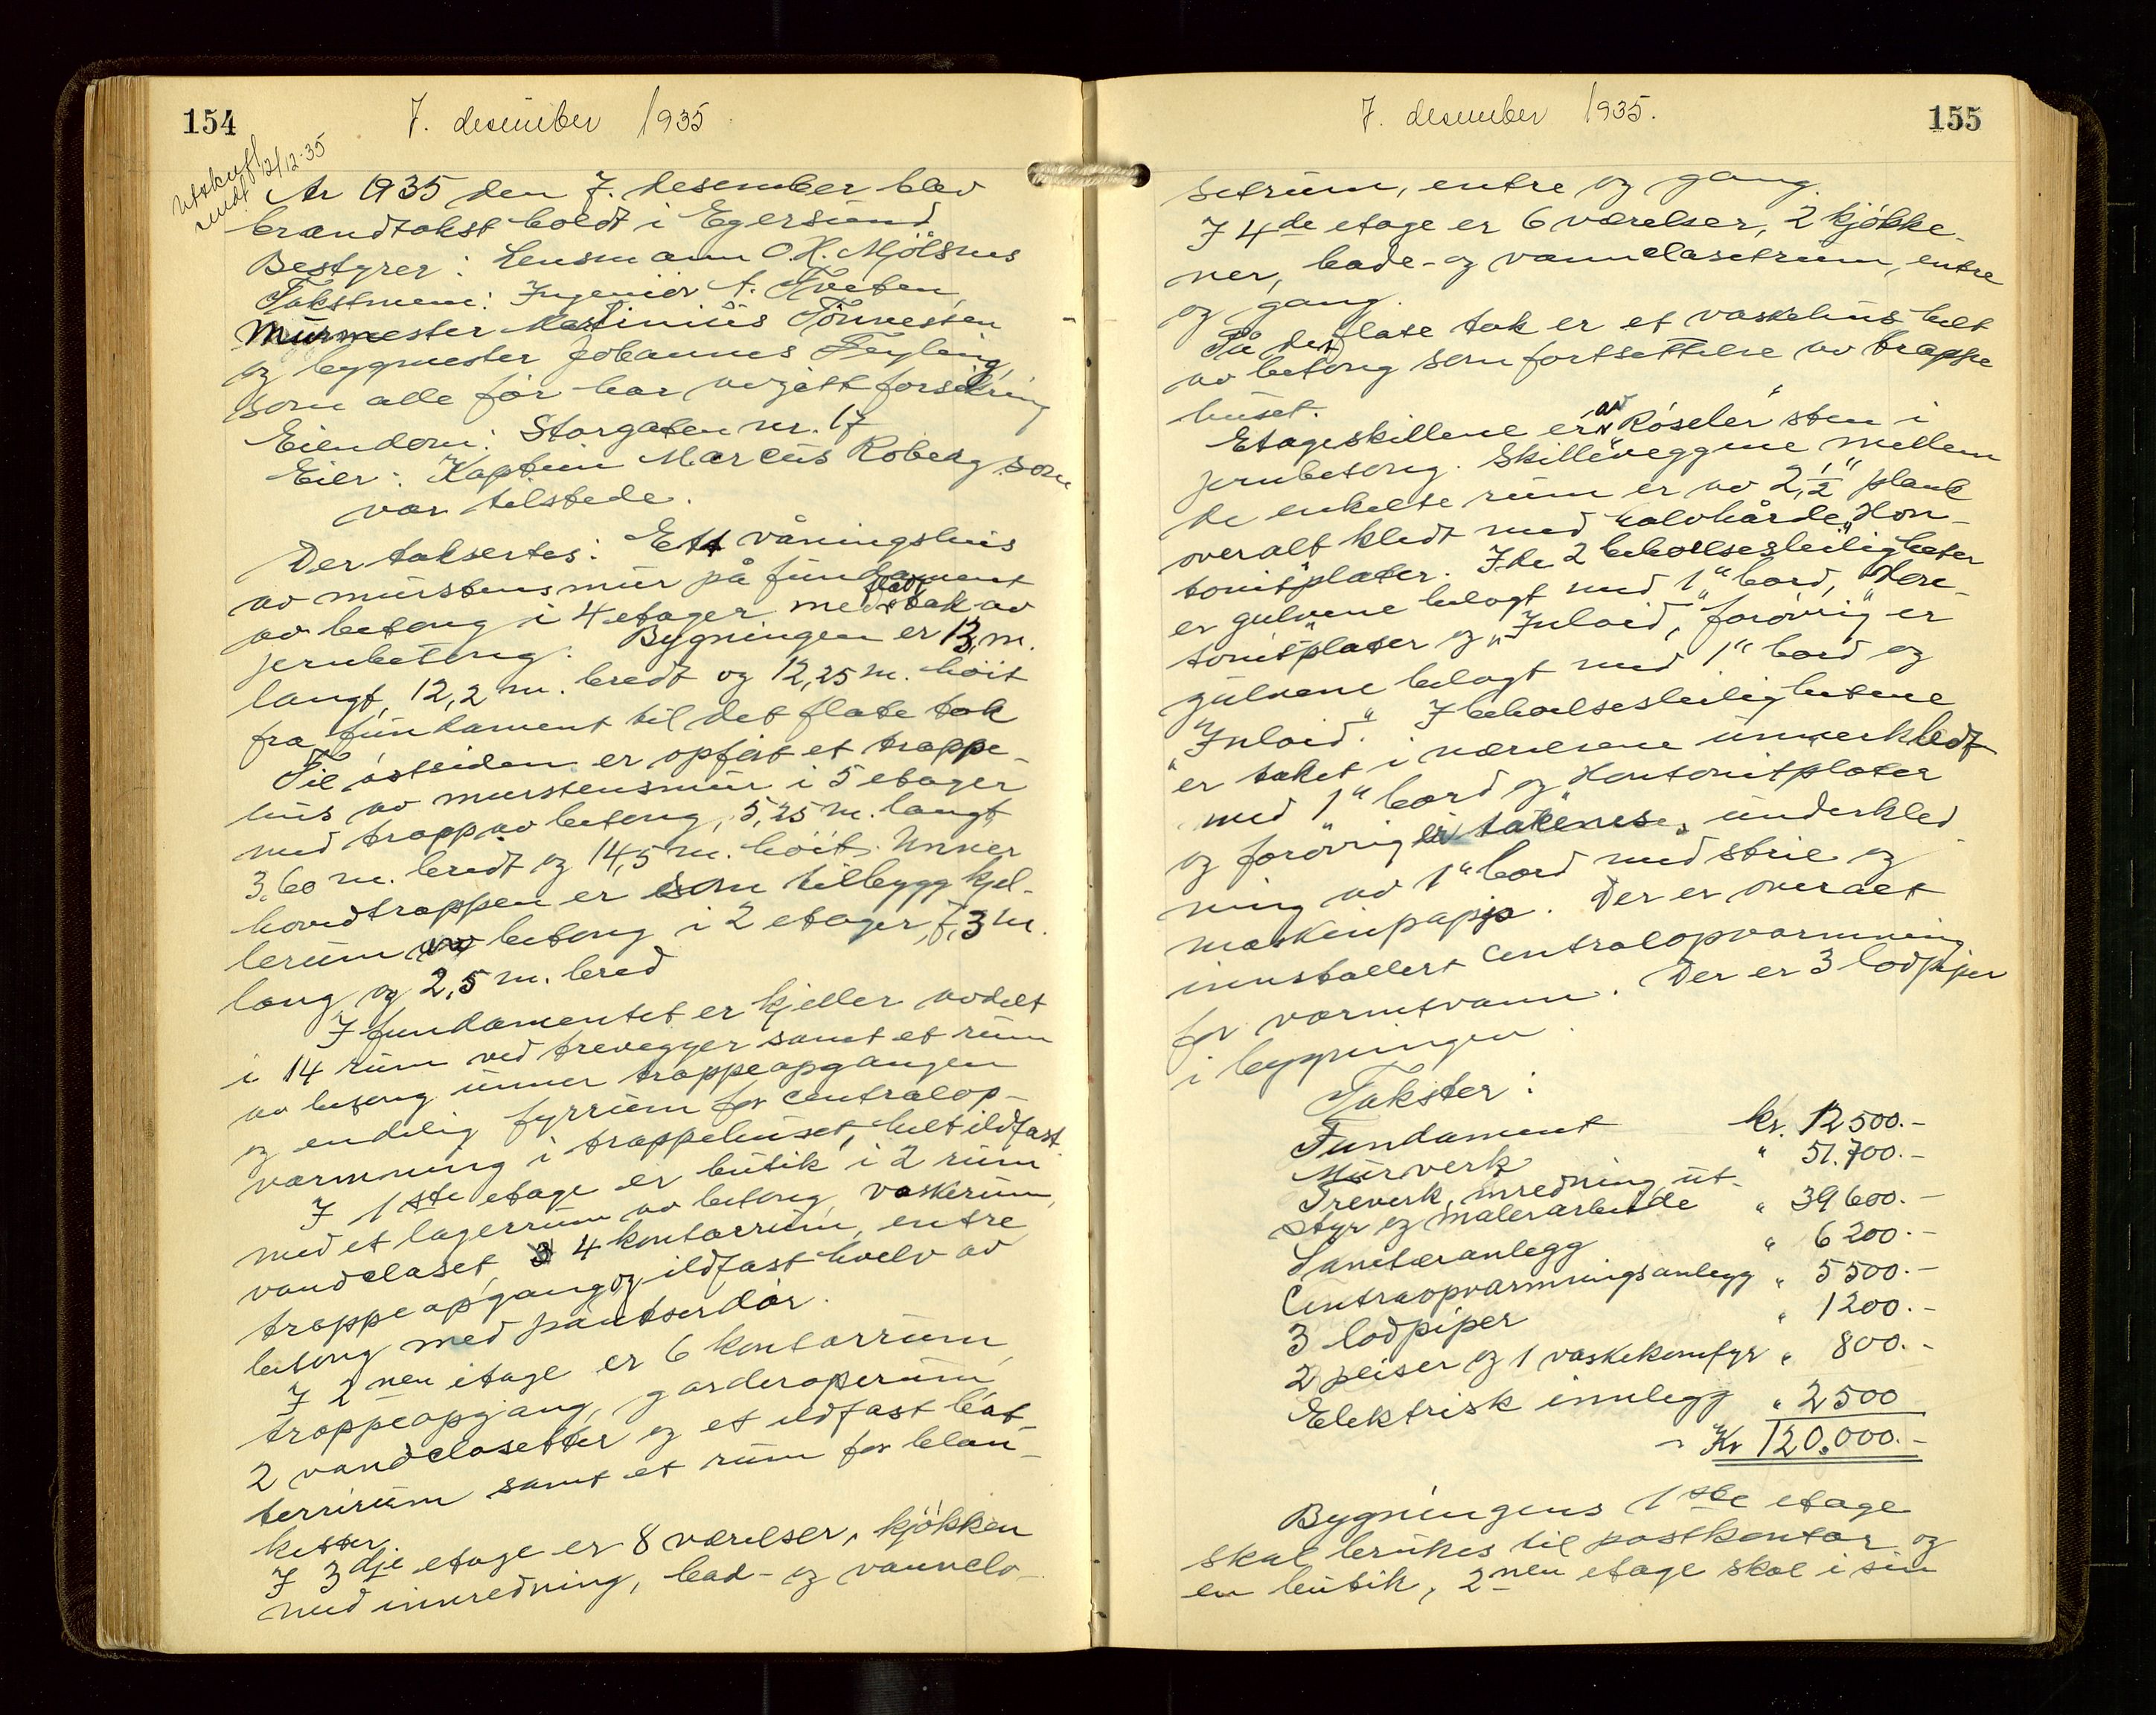 154
7. desember 1935.
Utskrift
sendt 12/12-35
År 1935 den 7. desember blev
brandtakst holdt i Egersund
Bestyrer: Lensmann O. K. Mjölsnes
Takstmenn: Ingeniör A. Tveten,
Murmester Martinius Tönnessen
og bygmester Johannes Feyling,
som alle för har avgitt forsikring
Eiendom: Storgaten nr. 17
Eier: Kaptein Marcus Roberg som
var tilstede.
Der taksertes: Ett våningshus
av murstensmur på fundament
av betong i 4 etager med flatt tak av
jernbetong. Bygningen er 13, m.
langt, 12,2 m. bredt og 12,25 m. höit
fra fundament til det flate tak
Til östsiden er opfört et trappe-
hus av murstensmur i 5 etager
med trapp av betong, 5,25 m. langt,
3,60 m. bredt og 14,5 m. höit. Unner
hovedtrappen er som tilbygg kjel-
lerum av betong i 2 etager, 7,3 m.
lang og 2,5 m. bred
I fundamentet er kjeller avdelt
i 14 rum ved trevegger samt et rum
av betong unner trappeopgangen
og endelig fyrrum for centralop-
varmning i trappehuset, helt ildfast.
I 1ste etage er butik i 2 rum
med et lagerrum av betong, vaskerum,
vandclaset, 4 kontorrum, entre
trappeopgang og ildfast hvelv av
betong med pantserdör.
I 2nen etage er 6 kontorrum,
trappeopgang, garderoperum,
2 vandclosetter og et ildfast bat-
terrirum samt et rum for blan-
ketter.
I 3dje etage er 8 værelser, kjökken
med innredning, bad- og vannclo-
155
7. desember 1935.
setrum, entre og gang.
I 4de etage er 6 værelser, 2 kjökke-
ner, bade- og vannclasetrum, entre
og gang.
På det flate tak er et vaskehus helt
av betong som fortsettelse av trappe
huset.
Etageskillene er av "Röseler" sten i
jernbetong. Skilleveggene mellem
de enkelte rum er av 2,½" plank
overalt kledt med halvhårde "Hon-
tonit" plater. I de 2 beboelsesleiligheter
er gulvene belagt med 1" bord, "Hon-
tonit" plater og "Inlaid", forövrig er
gulvene belagt med 1" bord og
"Inlaid". I beboelsesleilighetene
er taket i værelsene underkledt
med 1" bord og "Hontonit" plater
og forövrig er takenese underkled
ning av 1" bord med strie og
maskinpapp. Der er overalt
innstallert centralopvarmning
for varmtvann. Der er 3 lodpiper
i bygningen.
Takster:
Fundament kr. 12500.-
Murverk " 51.700.-
Treverk, inredning, ut-
styr og malerarbeide " 39600.-
Sanitæranlegg " 6200.-
Centraopvarmningsanlegg " 5500.-
3 lodpiper " 1200.-
2 peiser og 1 vaskekomfyr " 800.-
Elektrisk innlegg " 2500
Kr 120.000.-
Bygningens 1ste etage
skal brukes til postkontor og
en butik, 2nen etage skal i sin